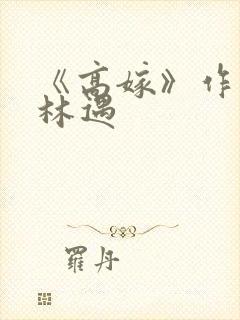 《高嫁》作
林遇
羅丹